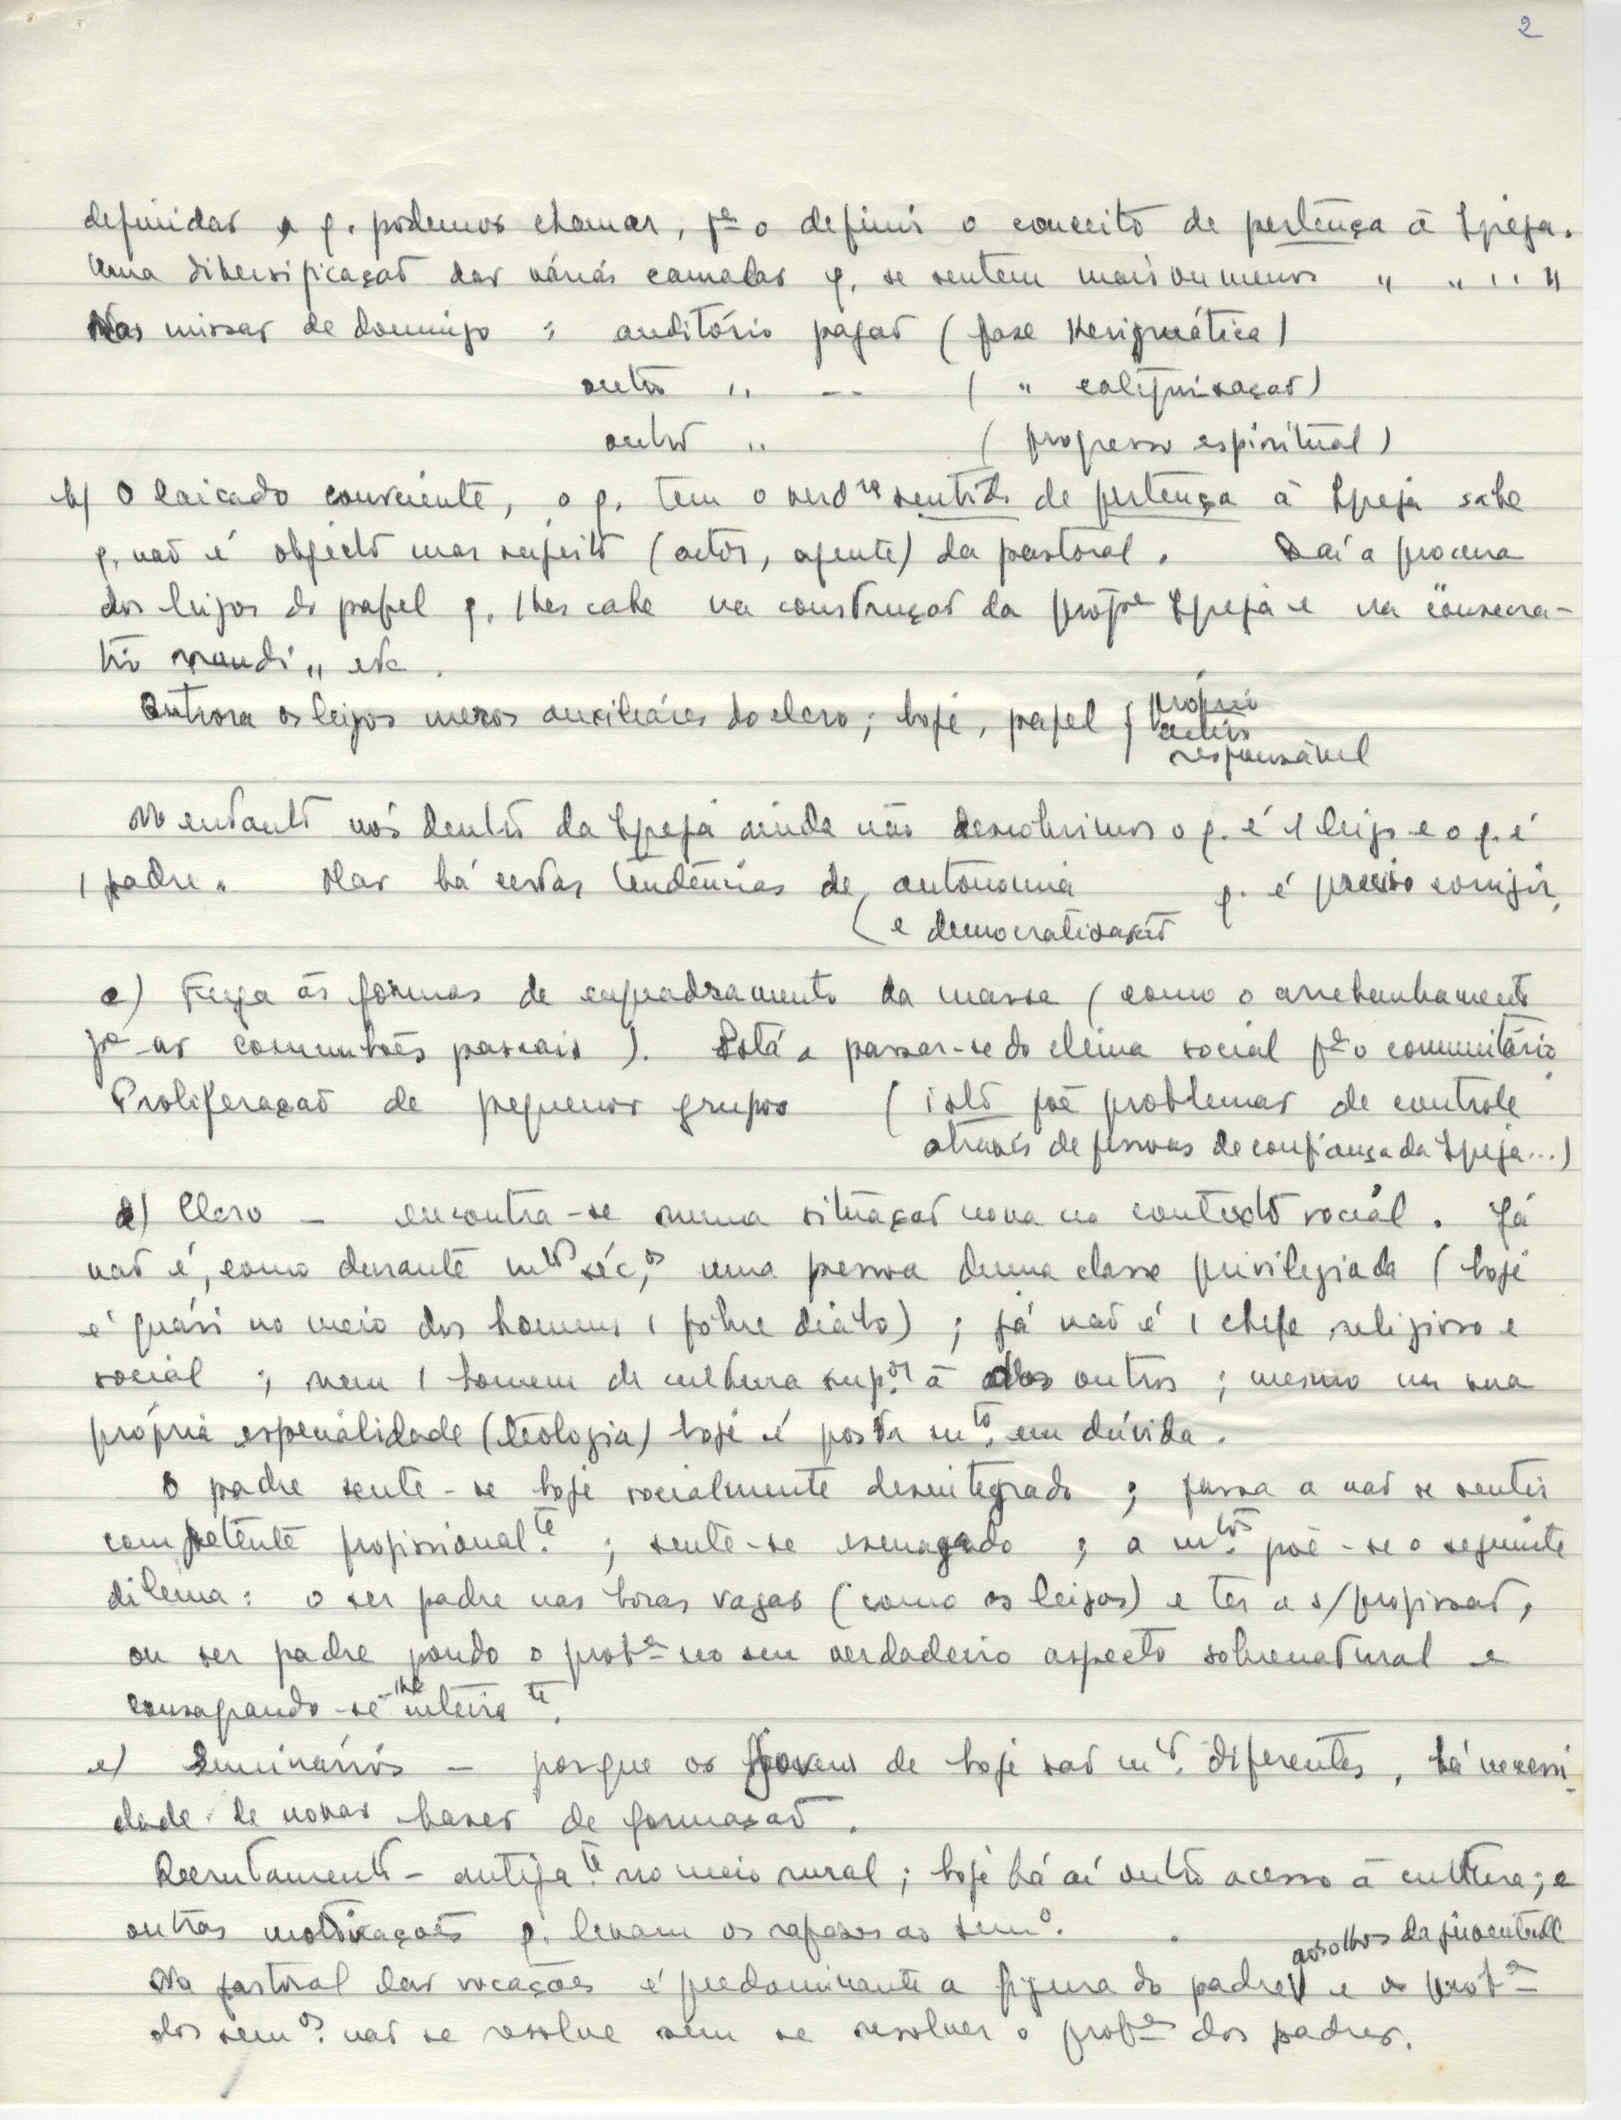 2
definidas a q. podemos chamar, pª o definir o conceito de pertença à Igreja.
Uma diversificação das várias camadas q. se sentem mais ou menos " " " "
Nas missas de domingo : auditório pagão (fase Kerigmática)
outro " -- ( " catequização)
outro " (progresso espiritual)
b) O laicado consciente, o q. tem o verdº sentido de pertença à Igreja sabe
q. não é objecto mas sujeito (actor, agente) da pastoral. Daí a procura
dos leigos do papel q. lhes cabe na construção da própª Igreja e na "consecra-
tio mundi" etc.
Outrora os leigos meros auxiliares do clero; hoje, papel { próprio
activo
responsável
No entanto nós dentro da Igreja ainda não descobrimos o q. é 1 leigo e o q. é
1 padre. Mas há certas tendências de autonomia q. é preciso corrigir,
( e democratização
c) Fuga às formas de enquadramento da massa (como o arrebanhamento
pª as comunhões pascais). Está a passar-se do clima social pª o comunitário.
Proliferação de pequenos grupos (isto põe problemas de controle
através de pessoas de confiança da Igreja...)
d) Clero - encontra-se numa situação nova no contexto social. Já
não é, como durante mtºs séc.os, uma pessoa duma classe privilegiada (hoje
é quási no meio dos homens 1 pobre diabo) ; já não é 1 chefe religioso e
social ; nem 1 homem de cultura sup.or à dos outros ; mesmo na sua
própria especialidade (teologia) hoje é posta mto. em dúvida.
O padre sente-se hoje socialmente desintegrado ; passa a não se sentir
competente profissional.te ; sente-se esmagado ; a mtos. põe-se o seguinte
dilema: o ser padre nas horas vagas (como os leigos) e ter a s/profissão,
ou ser padre pondo o probª no seu verdadeiro aspecto sobrenatural e
consagrando-se-lhe inteirate.
e) Seminários - porque os jovens de hoje são mtº. diferentes, há necessi-
dade de novas bases de formação.
Recrutamento - antiga.te no meio rural; hoje há aí outro acesso à cultura; e
outras motivações q. levam os rapazes ao semº.
Na pastoral das vocações é predominante a figura do padre aos olhos da juventude e o probª
dos semos. não se resolve sem se resolver o probª dos padres.